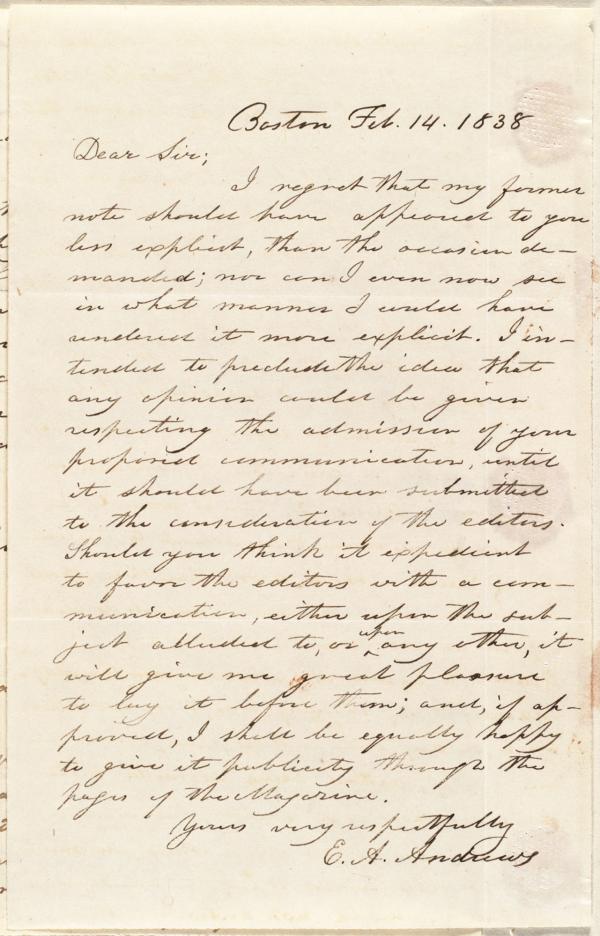 Boston Feb. 14. 1838
Dear Sir;
I regret that my former
note should have appeared to you
less explicit, than the occasion de-
manded; nor can I even now see
in what manner I could have
rendered it more explicit. I in-
tended to preclude the idea that
any opinion could be given
respecting the admission of your
proposed communication, until
it should have been submitted
to the consideration of the editors.
Should you think it expedient
to favor the editors with a com-
munication, either upon the sub-
ject alluded to, or upon any other, it
will give me great pleasure
to lay it before them; and, if ap-
proved, I shall be equally happy
to give it publicity through the
pages of the Magazine.
Yours very respectfully
E. A. Andrews